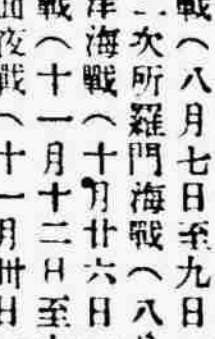 戰(八月七日至九日
二次所羅門海戰(八
海戰(十月廿六日
戰(十一月十二日至
夜戰(十一月卅日